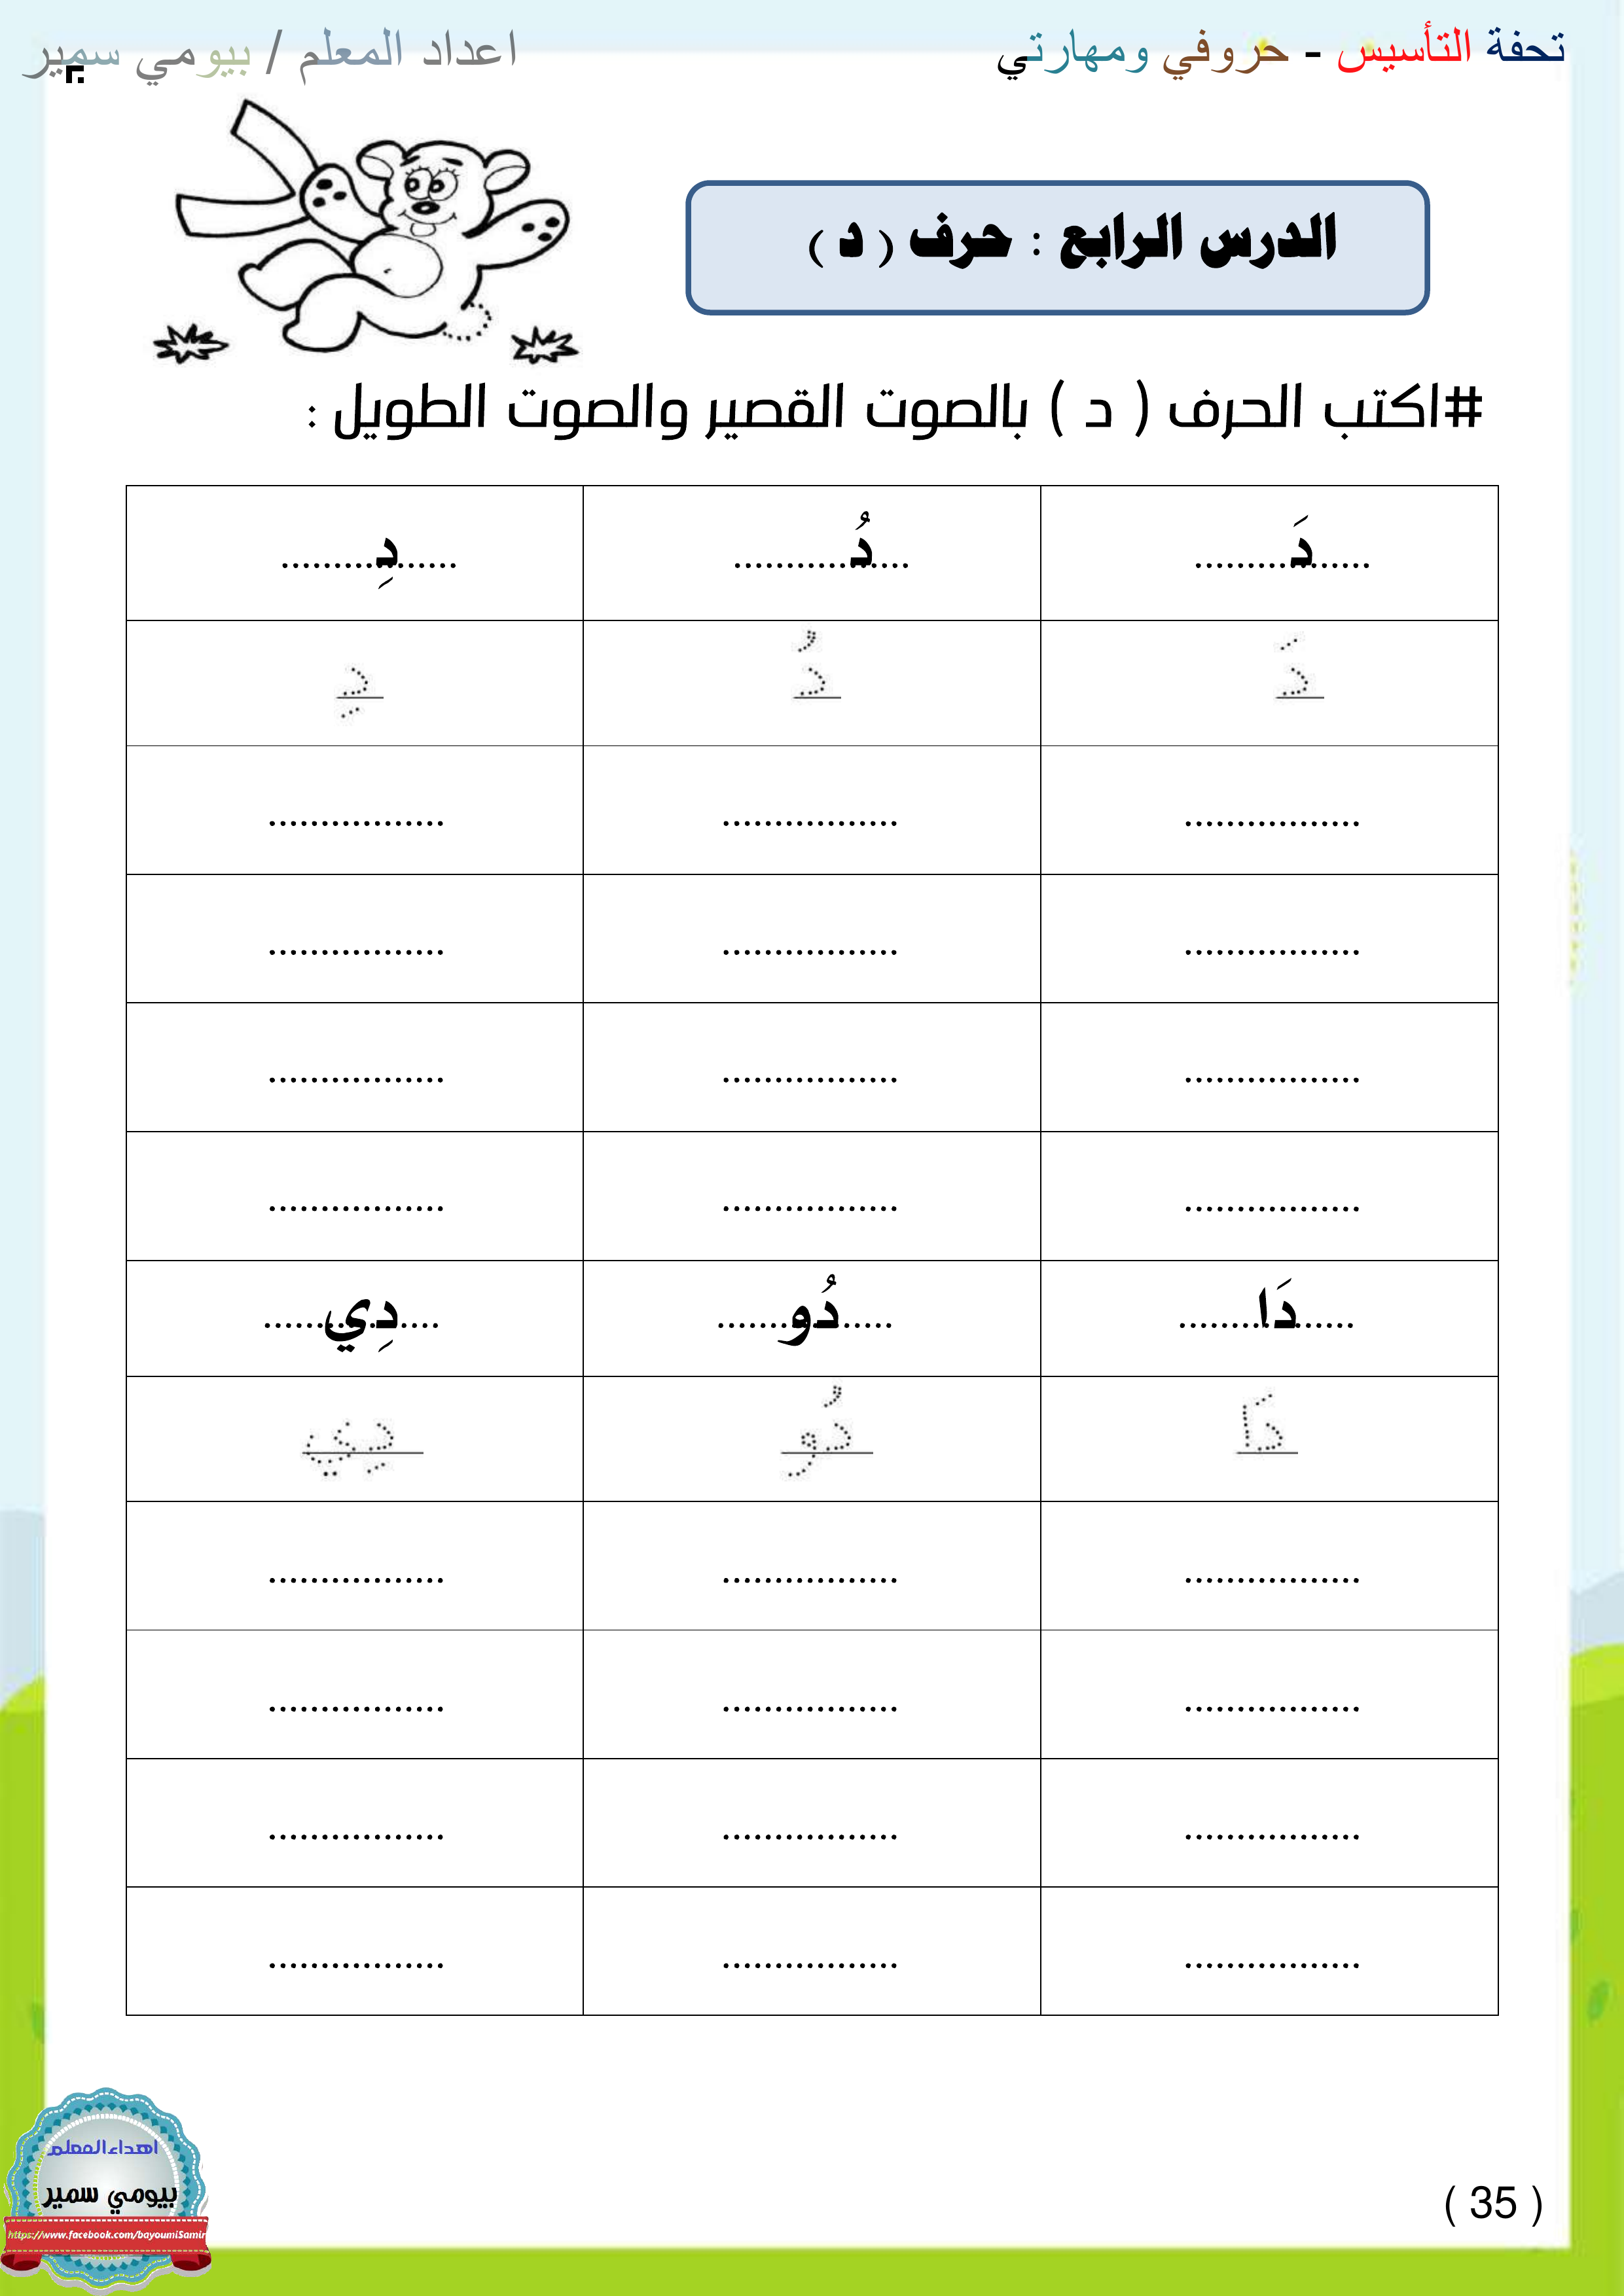 تحفة التأسيس - حروفي ومهارتي
اعداد المعلم / بيومي سمير
الدرس الرابع : حرف ( د )
#اكتب الحرف ( د ) بالصوت القصير والصوت الطويل :
دَ دُ دِ
دَ دُ دِ
................. ................. .................
................. ................. .................
................. ................. .................
................. ................. .................
دَا دُو دِي
دَا دُو دِي
................. ................. .................
................. ................. .................
................. ................. .................
................. ................. .................
اهداء المعلم
بيومي سمير
https://www.facebook.com/bayoumiSamir
( 35 )